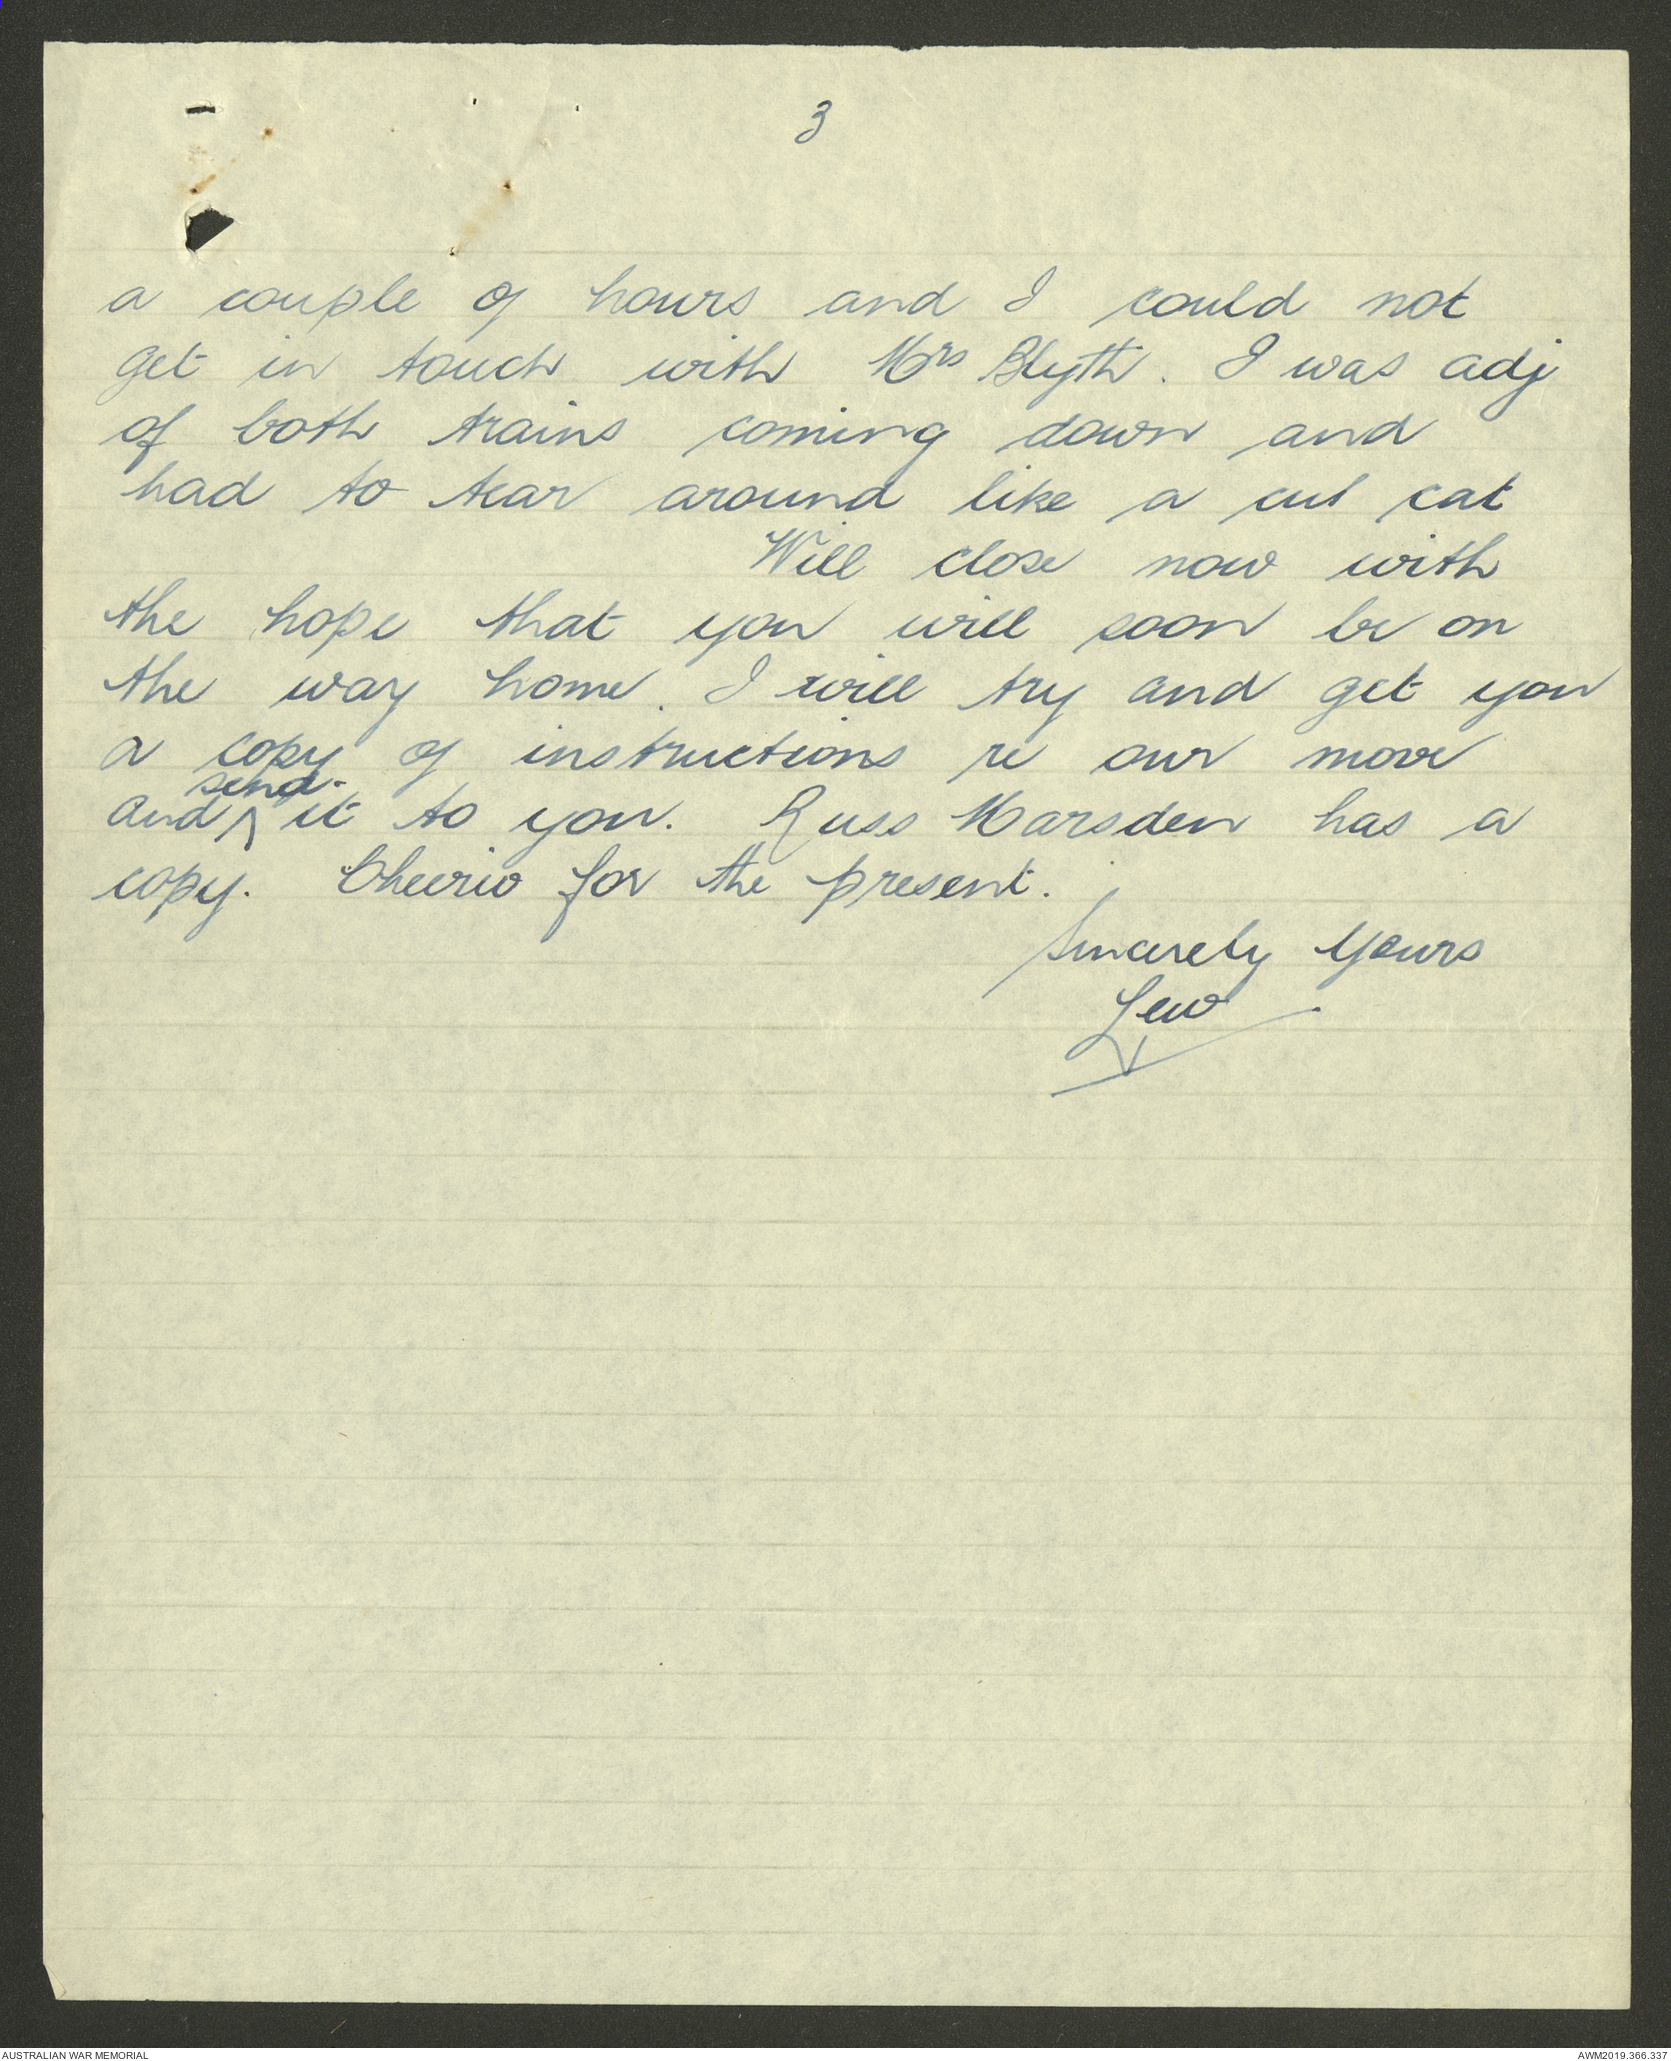 3
a couple of hours and I could not
get in touch with Mrs Blyth. I was adj
of both trains coming down and
had to tear around like a cut cat
Will close now with
the hope that you will soon be on
the way home. I will try and get you
a copy of instructions re our move
send
and ^ it to you. Russ Marsden has a
copy. Cheerio for the present.
Sincerely Yours
Lew
AUSTRALIAN WAR MEMORIAL
AWM2019.366.337